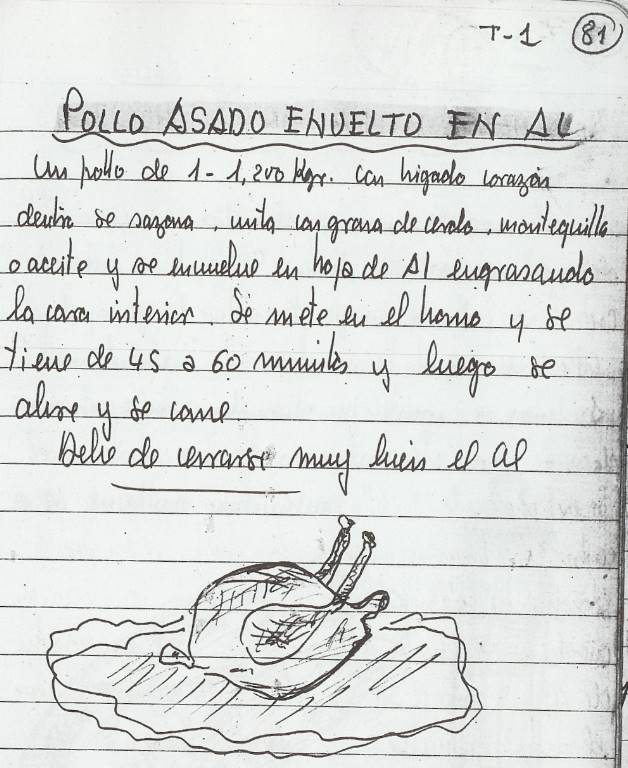 T-1 81
POLLO ASADO ENVUELTO EN AL
Un pollo de 1-1,200 Kgr. con higado corazón
dentro se sazona, unta con grasa de cerdo, mantequilla
o aceite y se envuelve en hoja de Al engrasando
la cara interior. Se mete en el horno y se
tiene de 45 a 60 minutos y luego se
abre y se come
Debe de cerrarse muy bien el Al